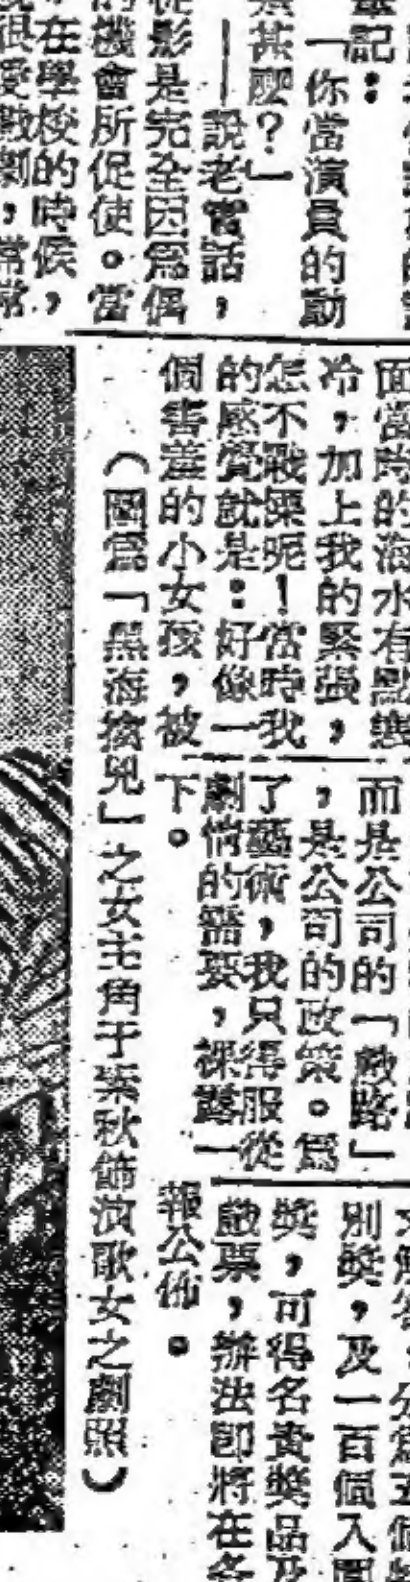 筆記:
「你當演員的動
甚麼?」
——說老實話,
從影是完全因爲偶
的機會所促使。當
在學校的時候,
很愛戲劇,常常
面當時的海水有點
冷,加上我的緊張,
怎不戰慄呢!當時我
的感覺就是:好像一
個害羞的小女孩,被
而是公司的「戲路」
,是公司的政策。爲
了藝術,我只得服從
劇情的需要,裸露一
下。
分爲五個
別獎,及一百個入圍
獎,可得名貴獎品及
戲票,辦法即將在各
報公佈。
(圖爲「黑海擒兇」之女主角于秋飾演歌女之劇照)